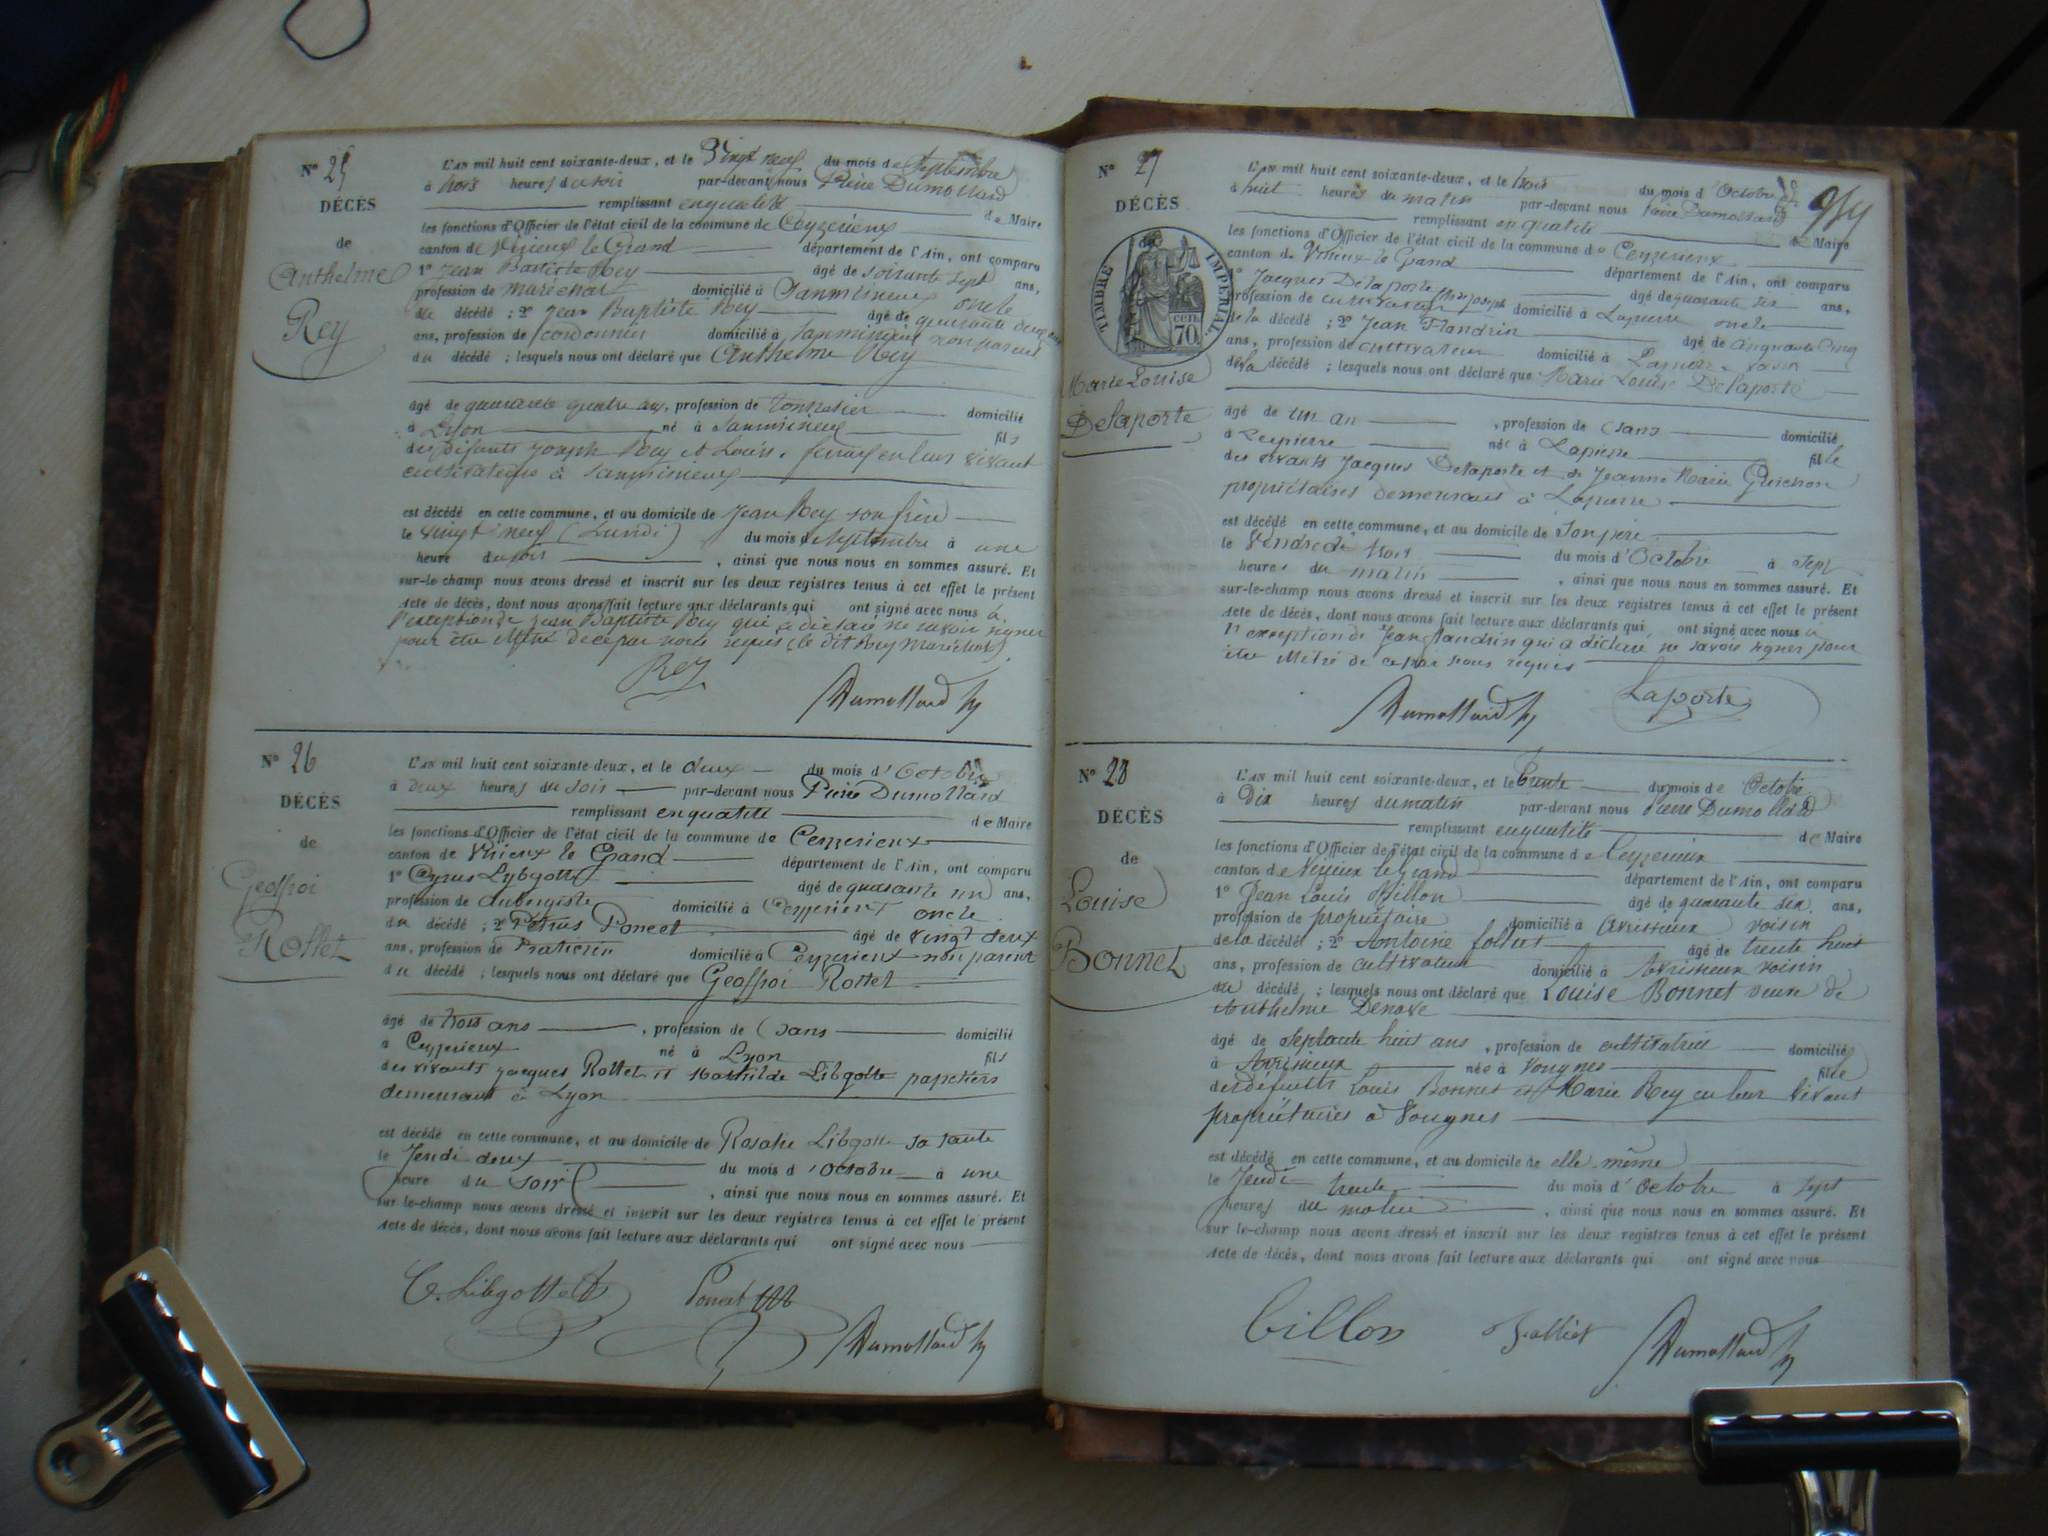 N° 25
DÉCÈS
de
Anthelme
Rey
L'AN mil huit cent soixante-deux, et le Vingt neuf du mois de Septembre
à trois heures du soir par-devant nous Pierre Dumollard
remplissant en qualité de Maire
les fonctions d'Officier de l'état civil de la commune de Ceyzerieux
canton de Virieux le Grand département de l'Ain, ont comparu
1° Jean Baptiste Rey âgé de soixante sept ans,
profession de maréchal domicilié à oncle
du décédé ; 2° Jean Baptiste Rey âgé de quarante deux
ans, profession de cordonnier domicilié à non parent
du décédé ; lesquels nous ont déclaré que Anthelme Rey
âgé de quarante quatre ans, profession de domicilié
à Lyon né à fils
des défunts Joseph Rey et Louise en leur vivant
cultivateurs à
est décédé en cette commune, et au domicile de Jean Rey son frère
le vingt neuf (Lundi) du mois de Septembre à une
heure du soir , ainsi que nous nous en sommes assuré. Et
sur-le champ nous avons dressé et inscrit sur les deux registres tenus à cet effet le présent
Acte de décès, dont nous avons fait lecture aux déclarants qui ont signé avec nous à
l'exception de Jean Baptiste Rey qui a déclaré ne savoir signer
pour être de ce par nous requis (le dit Rey Maréchal)
Rey
Dumollard
N° 26
DÉCÈS
de
Geoffroi
Rottet
L'AN mil huit cent soixante-deux, et le deux du mois d'Octobre
à deux heures du soir par-devant nous Pierre Dumollard
remplissant en qualité de Maire
les fonctions d'Officier de l'état civil de la commune de Ceyzerieux
canton de Virieux le Grand département de l'Ain, ont comparu
1° Cyrus Lybgotte âgé de quarante un ans,
profession de aubergiste domicilié à Ceyzerieux oncle
du décédé ; 2° Petrus Poncet âgé de vingt deux
ans, profession de Praticien domicilié à Ceyzerieux non parent
du décédé ; lesquels nous ont déclaré que Geoffroi Rottet
âgé de trois ans , profession de sans domicilié
à Ceyzerieux né à Lyon fils
des vivants Jacques Rottet et Mathilde Libgotte papetiers
demeurant à Lyon
est décédé en cette commune, et au domicile de Rosalie Libgotte sa tante
le Jeudi deux du mois d'Octobre à une
heure du soir , ainsi que nous nous en sommes assuré. Et
sur le-champ nous avons dressé et inscrit sur les deux registres tenus à cet effet le présent
Acte de décès, dont nous avons fait lecture aux déclarants qui ont signé avec nous
C. Libgotte
Poncet
Dumollard
N° 27
DÉCÈS
de
TIMBRE IMPÉRIAL
70 cen.
Marie Louise
Delaporte
L'AN mil huit cent soixante-deux, et le trois du mois d'Octobre
à huit heures du matin par-devant nous Pierre Dumollard
remplissant en qualité de Maire
les fonctions d'Officier de l'état civil de la commune de Ceyzerieux
canton de Virieux le Grand département de l'Ain, ont comparu
1° Jacques Delaporte âgé de quarante six ans,
profession de cultivateur domicilié à Lapierre oncle
de la décédé ; 2° Jean Flandrin âgé de cinquante cinq
ans, profession de cultivateur domicilié à Lapierre voisin
de la décédé ; lesquels nous ont déclaré que Marie Louise Delaporte
âgé de un an , profession de sans domicilié
à Lapierre née à Lapierre fille
des vivants Jacques Delaporte et de Jeanne Marie Guichon
propriétaires demeurant à Lapierre
est décédé en cette commune, et au domicile de son père
le Vendredi trois du mois d'Octobre à sept
heures du matin , ainsi que nous nous en sommes assuré. Et
sur-le-champ nous avons dressé et inscrit sur les deux registres tenus à cet effet le présent
Acte de décès, dont nous avons fait lecture aux déclarants qui ont signé avec nous à
l'exception de Jean Flandrin qui a déclaré ne savoir signer pour
être de ce par nous requis
Dumollard
Laporte
N° 28
DÉCÈS
de
Louise
Bonnet
L'AN mil huit cent soixante-deux, et le trente du mois de Octobre
à dix heures du matin par-devant nous Pierre Dumollard
remplissant en qualité de Maire
les fonctions d'Officier de l'état civil de la commune de Ceyzerieux
canton de Virieux le Grand département de l'Ain, ont comparu
1° Jean Louis Billon âgé de quarante six ans,
profession de propriétaire domicilié à Avrissieux voisin
de la décédé ; 2° Antoine Folliet âgé de trente huit
ans, profession de cultivateur domicilié à Avrissieux voisin
du décédé ; lesquels nous ont déclaré que Louise Bonnet veuve de
Anthelme
âgé de septante huit ans , profession de cultivatrice domicilié
à Avrissieux née à Vongnes fille
des défunts Louis Bonnet et Marie Rey en leur vivant
propriétaires à Vongnes
est décédé en cette commune, et au domicile de elle même
le Jeudi trente du mois d'Octobre à sept
heures du matin , ainsi que nous nous en sommes assuré. Et
sur le-champ nous avons dressé et inscrit sur les deux registres tenus à cet effet le présent
Acte de décès, dont nous avons fait lecture aux déclarants qui ont signé avec nous
Billon
Folliet
Dumollard